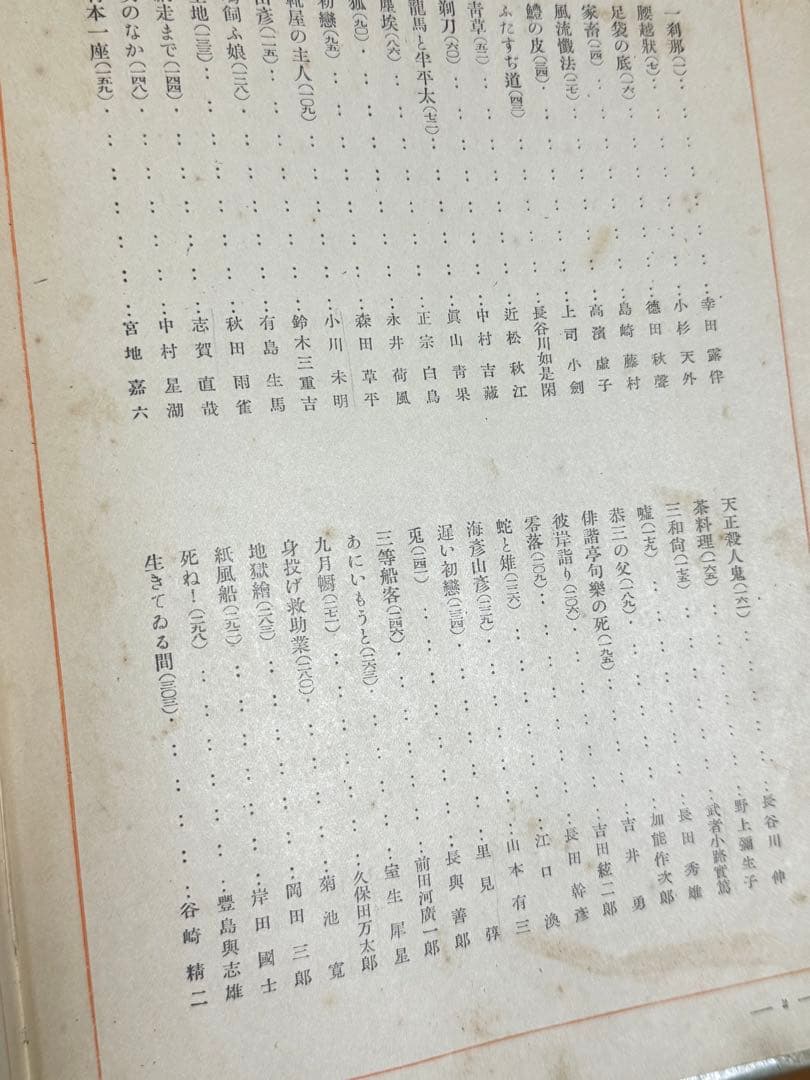 一刹那(一)‥‥幸田露伴
腰越狀(七)‥‥小杉天外
足袋の底(一六)‥‥德田秋聲
家畜(二四)‥‥島崎藤村
風流懺法(二七)‥‥高濱虛子
鱧の皮(三四)‥‥上司小劍
ふたすぢ道(四三)‥‥長谷川如是閑
青草(五二)‥‥近松秋江
剃刀(六〇)‥‥中村吉藏
龍馬と半平太(七二)‥‥眞山青果
塵埃(八六)‥‥正宗白鳥
狐(九〇)‥‥永井荷風
初戀(九五)‥‥森田草平
靴屋の主人(一〇九)‥‥小川未明
山彦(一一五)‥‥鈴木三重吉
飼ふ娘(一二八)‥‥有島生馬
地(一三三)‥‥秋田雨雀
網走まで(一四四)‥‥志賀直哉
のなか(一四八)‥‥中村星湖
本一座(一五九)‥‥宮地嘉六
天正殺人鬼(一六一)‥‥長谷川伸
茶料理(一六五)‥‥野上彌生子
三和尙(一七五)‥‥武者小路實篤
噓(一七九)‥‥長田秀雄
恭三の父(一八九)‥‥加能作次郎
俳諧亭句樂の死(一九五)‥‥吉井勇
彼岸詣り(二〇六)‥‥吉田絃二郎
零落(二〇九)‥‥長田幹彦
蛇と雉(二二六)‥‥江口渙
海彦山彦(二二九)‥‥山本有三
遲い初戀(二三四)‥‥里見弴
兎(二四一)‥‥長與善郎
三等船客(二四六)‥‥前田河廣一郎
あにいもうと(二六三)‥‥室生犀星
九月櫥(二七一)‥‥久保田万太郎
身投げ救助業(二八〇)‥‥菊池寬
地獄繪(二八三)‥‥岡田三郎
紙風船(二九二)‥‥岸田國士
死ね!(二九八)‥‥豐島與志雄
生きてゐる間(三〇三)‥‥谷崎精二